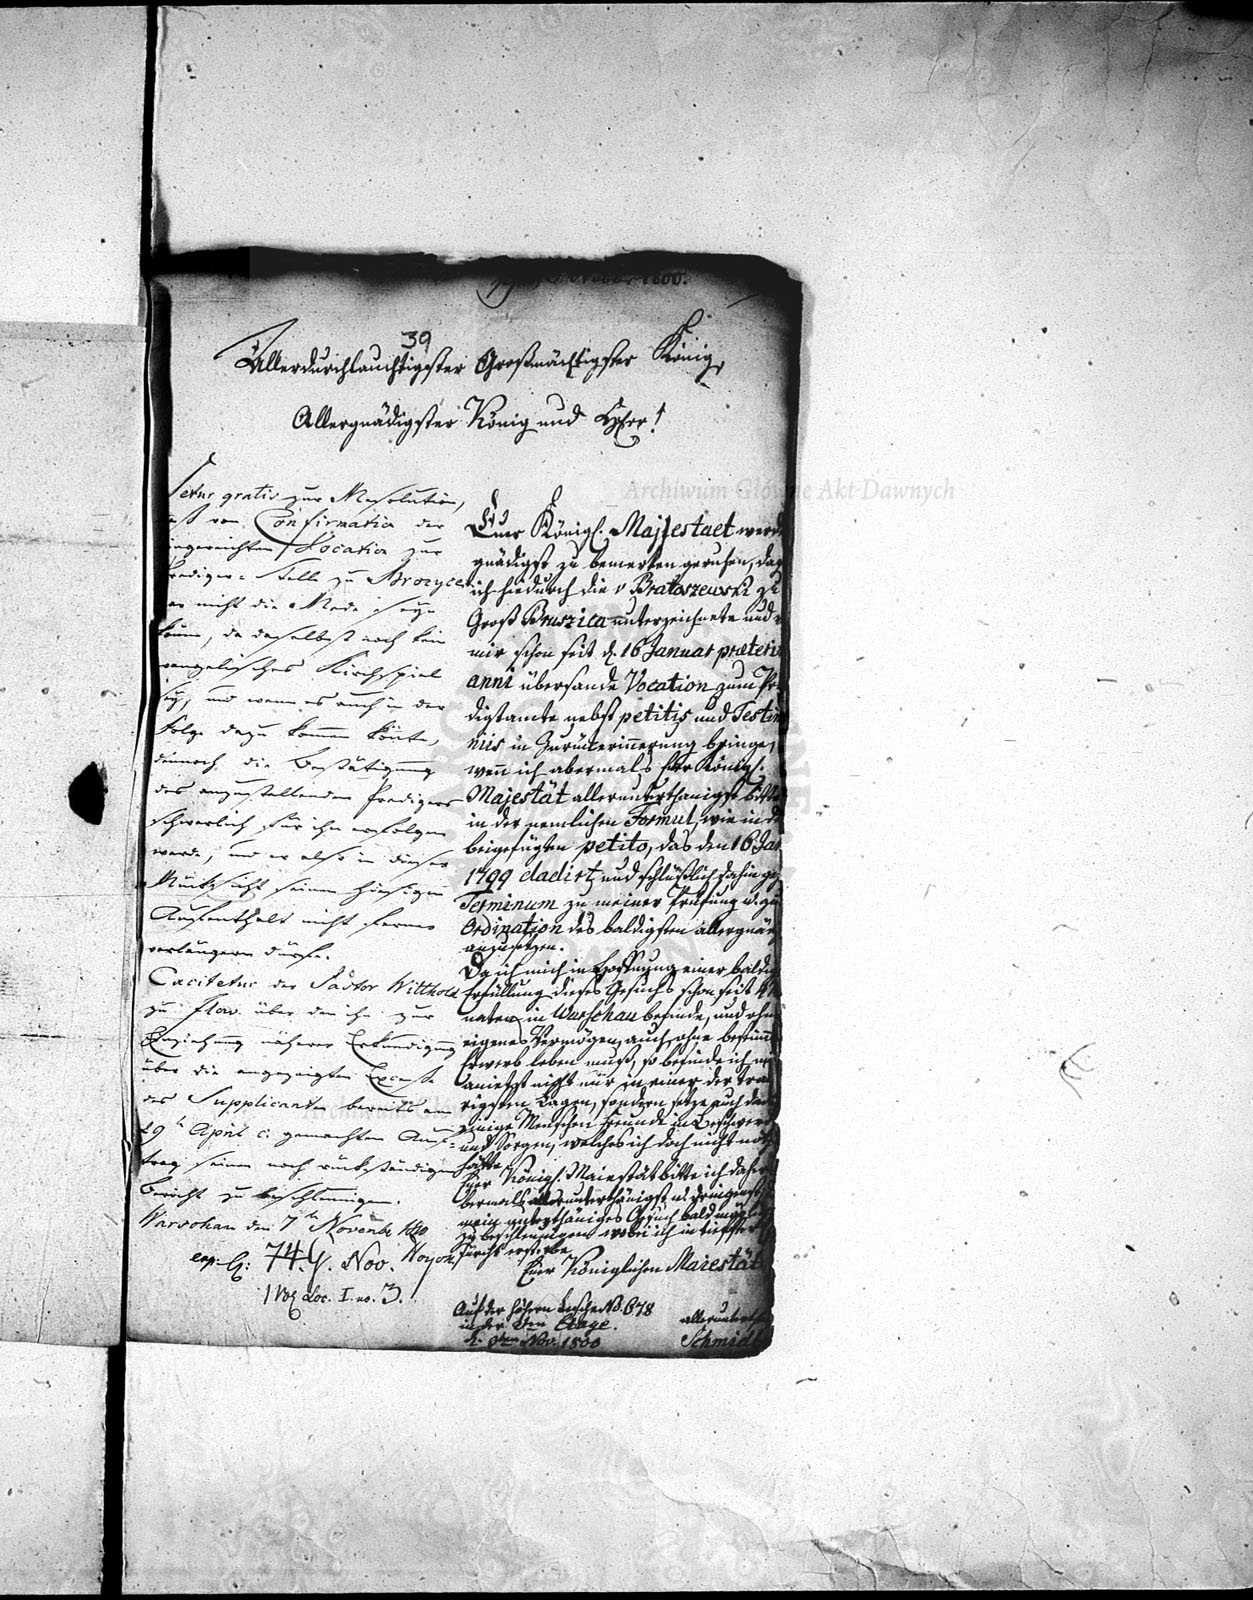 1800.
39
Allerdurchlauchtigster Großmächtigster König,
Allergnädigster König und Herr!
Detur gratis zur Resolution,
daß von Confirmatio der
eingereichten Vocation zur
Prediger-Stelle zu Brozyce
nicht die Rede seyn
könne, da daselbst noch kein
evangelisches Kirchspiel
sey, und wenn es auch in der
Folge dazu kommen könte,
dennoch die Bestätigung
des anzustellenden Predigers
schwerlich für ihn erfolgen
werde, und er also in dieser
Rücksicht seinen hiesigen
Aufenthalt nicht ferner
verlängern dürfe.
Excitetur der Pastor Witthold
zu Ilow über den ihn zur
Einziehung näherer Erkundigung
über die angezeigten Excesse
des Supplicanten bereits am
29t April c. gemachten Auf-
trag seinen noch rückständigen
Bericht zu beschleunigen.
Warschau den 7ten Novembr 1800
Hoyon
74. Nov.
Loc. I. no. 3.
Euer Königl. Majestaet werd
gnädigst zu bemerken geruhen, daß
ich hiedurch die v Bratoszewski zu
Groß Bruszica unterzeichnete und
mir schon seit d. 16 Januar præteri
anni übersande Vocation zum Pre
digtamte nebst petitis und Testim
niis in Zurückerinnerung bringe,
weñ ich abermals Euer Königl.
Majestät allerunterthänigst bitte
in der nemlichen Formul, wie in d
beigefügten petito, das den 16 Jan
1799 dadirt, und schlüßlich dahin ge
Terminum zu meiner Prüfung u. zu
Ordination des baldigsten allergnäd
anzusetzen.
Da ich mich in Hoffnung einer baldig
Erfüllung dieses Gesuchs schon seit
naten in Warschau befinde, und ohn
eigenes Vermögen, auch ohne bestimmt
Erwerb leben muß, so befinde ich mi
anietzt nicht nur in einer der trau
rigsten Lagen, sondern setze auch da
einige Menschen Freunde in Beschwerd
und Sorgen, welches ich doch nicht nöth
hätte.
Euer Königl. Maiestät bitte ich daher
bermals allerunterthänigst u. dringenst
mein unterthäniges Gesuch bald mögli
zu beschleunigen wobei ich in tiefster
Furcht ersterbe
Euer Königlichen Maiestät
Auf der No. 678
in der 2ten Etage.
d. Nov. 1800
allerunterth
Schmidt